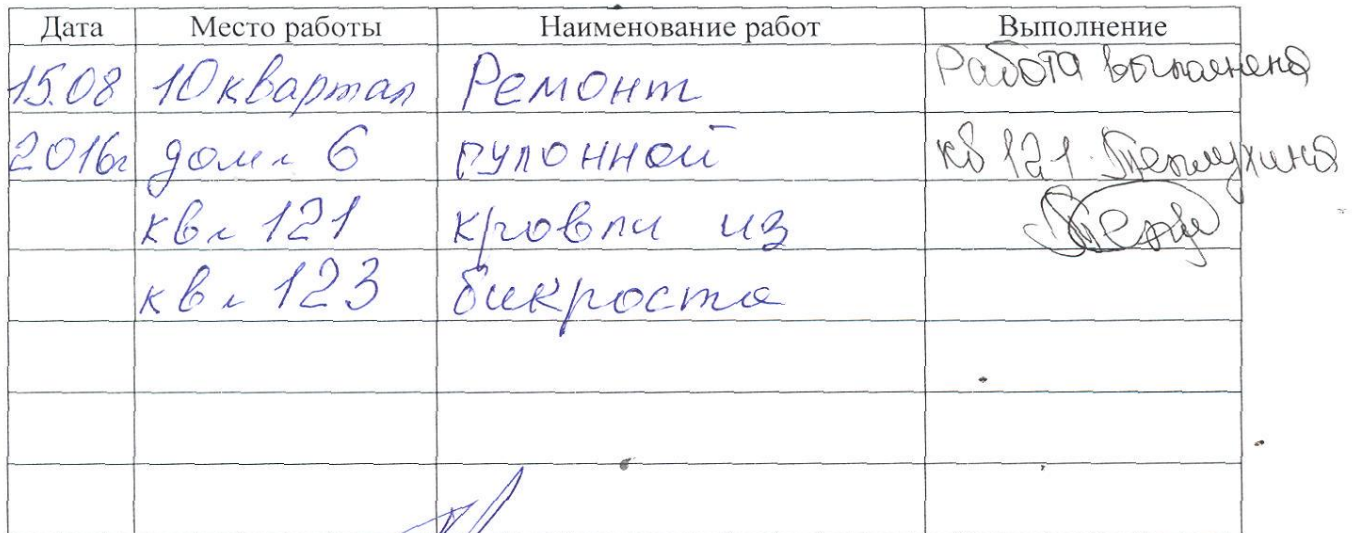 Дата Место работы Наименование работ Выполнение
15.08 10 квартал Ремонт Работа выполнена
2016г дом 6 рулонной кв 121
кв 121 кровли из
кв 123 бикроста